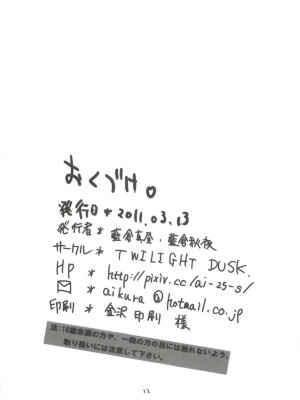 おくづけ。
発行日 * 2011.03.13
発行者 * 藍倉真昼・藍倉秋夜
サークル * TWILIGHT DUSK.
HP * http://pixiv.cc/ai-25-8/
✉ * aikura@hotmail.co.jp
印刷 * 金沢印刷 様
注:18歳未満の方や、一般の方の目には触れないよう、
取り扱いには注意して下さい。